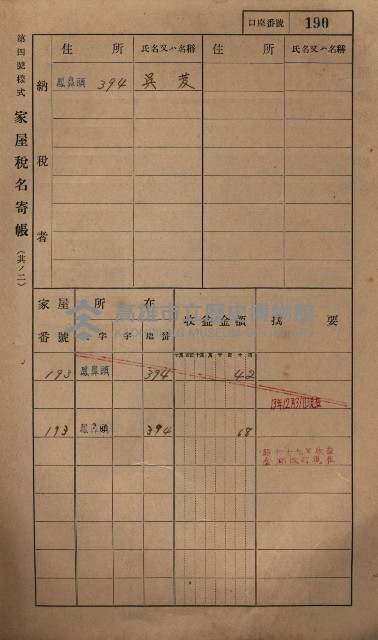 口座番號 190
第四號樣式 家屋稅名寄帳 (其ノ二)
納稅者
住所 氏名又ハ名稱 住所 氏名又ハ名稱
鳳鼻頭 394 吳
家屋番號 所在 收益金額 摘要
字 字 地番
193 鳳鼻頭 394 42
13年12月31日現在
193 鳳鼻頭 394 68
高雄市立歷史博物館